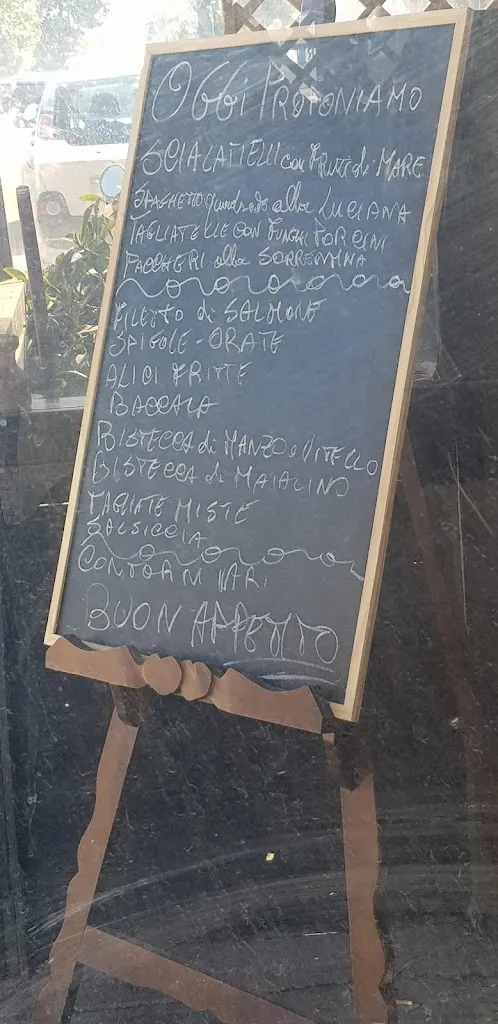 OGGI PROPONIAMO
SCIALATIELLI con FRUTTI di MARE
SPAGHETTO quadrato alla LUCIANA
TAGLIATELLE CON FUNGHI PORCINI
PACCHERI alla SORRENTINA
FILETTO di SALMONE
SPIGOLE - ORATE
ALICI FRITTE
BACCALA
BISTECCA di MANZO o VITELLO
BISTECCA di MAIALINO
TAGLIATE MISTE
SALSICCIA
CONTORNI VARI
BUON APPETITO